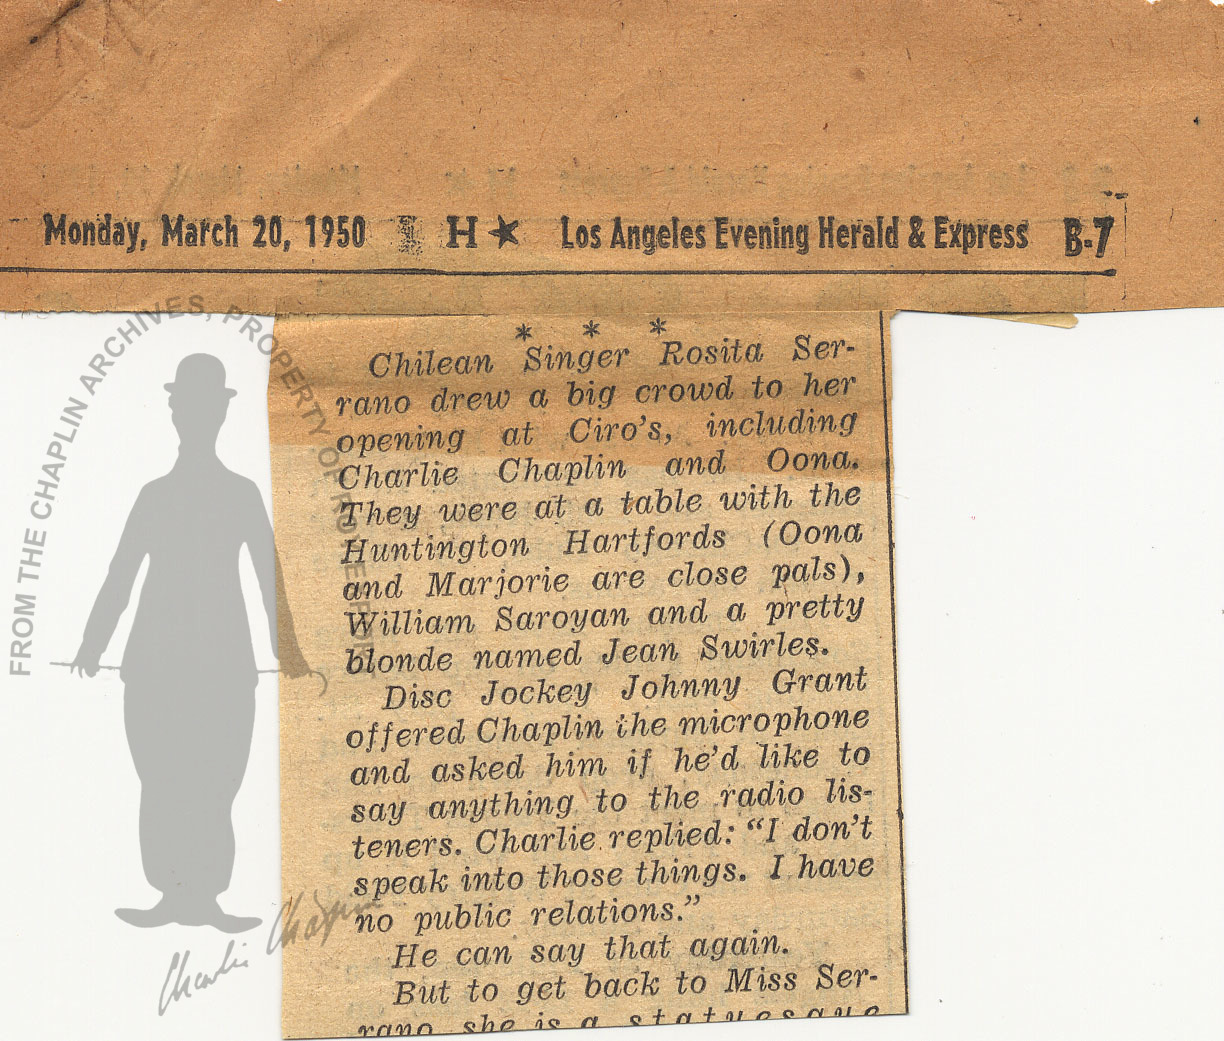 Monday, March 20, 1950 I H★ Los Angeles Evening Herald & Express B-7
* * *
Chilean Singer Rosita Ser-
rano drew a big crowd to her
opening at Ciro's, including
Charlie Chaplin and Oona.
They were at a table with the
Huntington Hartfords (Oona
and Marjorie are close pals),
William Saroyan and a pretty
blonde named Jean Swirles.
Disc Jockey Johnny Grant
offered Chaplin the microphone
and asked him if he'd like to
say anything to the radio lis-
teners. Charlie replied: "I don't
speak into those things. I have
no public relations."
He can say that again.
But to get back to Miss Ser-
rano she is a statuesque
FROM THE CHAPLIN ARCHIVES, PROPERTY OF ROY EXPORT
Charlie Chaplin